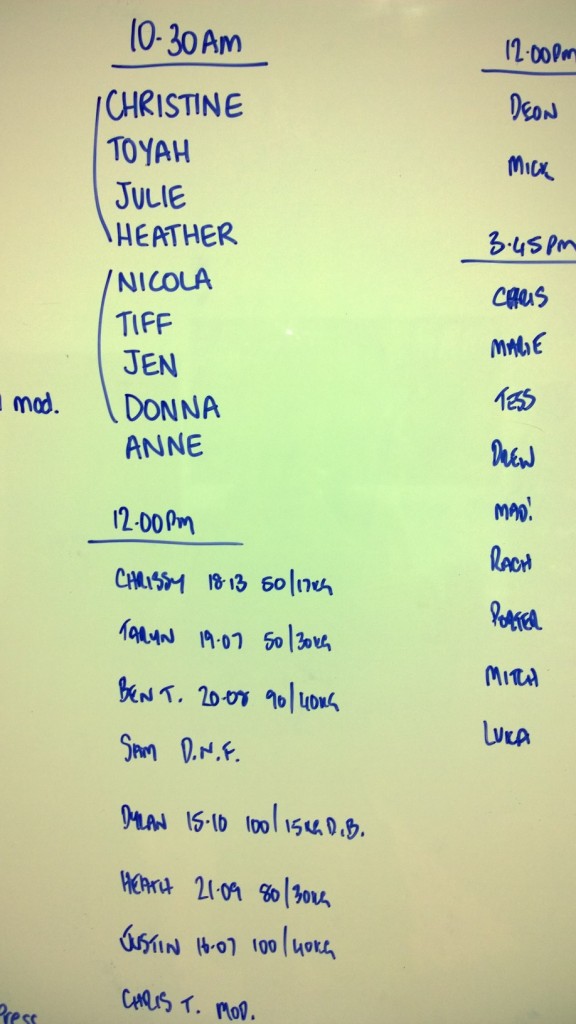 10.30AM
CHRISTINE
TOYAH
JULIE
HEATHER
NICOLA
TIFF
JEN
mod.
DONNA
ANNE
12.00Pm
CHRISSY 18.13 50/17KG
TARYN 19.07 50/30KG
BEN T. 20.08 90/40KG
SAM D.N.F.
DYLAN 15.10 100/15KG D.B.
HEATH 21.09 80/30KG
JUSTIN 16.07 100/40KG
CHRIS T. MOD.
Press
12.00Pm
DEON
MICK
3.45Pm
CHRIS
MARIE
TESS
DREW
MAD!
RACH
PORTER
MITCH
LUKA